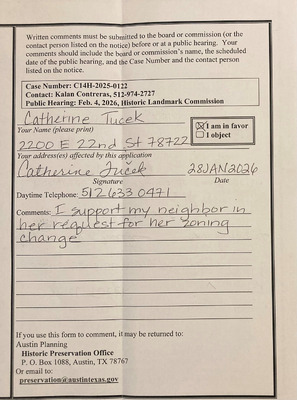 Written comments must be submitted to the board or commission (or the
contact person listed on the notice) before or at a public hearing. Your
comments should include the board or commission's name, the scheduled
date of the public hearing, and the Case Number and the contact person
listed on the notice.
Case Number: C14H-2025-0122
Contact: Kalan Contreras, 512-974-2727
Public Hearing: Feb. 4, 2026, Historic Landmark Commission
Catherine Tucek
Your Name (please print)
I am in favor
I object
2200 E 22nd St 78722
Your address(es) affected by this application
Catherine Tucek 28JAN2026
Signature Date
Daytime Telephone: 512 633 0471
Comments: I support my neighbor in
her request for her zoning
change
If you use this form to comment, it may be returned to:
Austin Planning
Historic Preservation Office
P. O. Box 1088, Austin, TX 78767
Or email to:
preservation@austintexas.gov